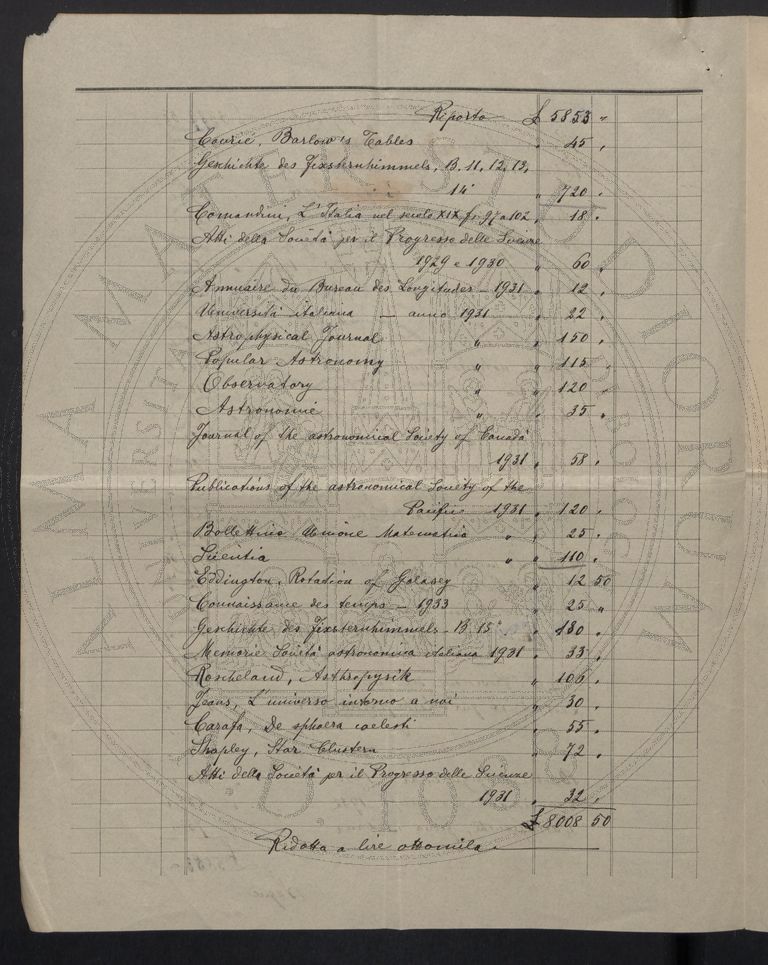 Riporto £ 5853 "
Courie, Barlow's Tables " 45 "
Geschichte des Fixsternhimmels, B. 11, 12, 13,
14° " 720 "
Comandini, L'Italia nel secolo XIX fs. 97 a 102 " 18 "
Atti della Società per il Progresso delle Scienze
1929 e 1930 " 60 "
Annuaire du Bureau des Longitudes - 1931 " 12 "
Università italiana - anno 1931 " 22 "
Astrophysical Journal " " 150 "
Popular Astronomy " " 115 "
Observatory " " 120 "
Astronomie " " 35 "
Journal of the astronomical Society of Canadà
1931 " 58 "
Publications of the astronomical Society of the
Pacific 1931 " 120 "
Bollettino Unione Matematica " " 25 "
Scientia " " 110 "
Eddington, Rotation of Galaxey " 12 50
Connaissance des temps - 1933 " 25 "
Geschichte des Fixsternhimmels - B. 15° " 180 "
Memorie Società astronomica italiana 1931 " 33 "
Roscheland, Asthropysik " 106 "
Jeans, L'universo intorno a noi " 30 "
Carafa, De sphaera caelesti " 55 "
Shapley, Star Clustern " 72 "
Atti della Società per il Progresso delle Scienze
1931 " 32 "
£ 8008 50
Ridotta a lire ottomila.